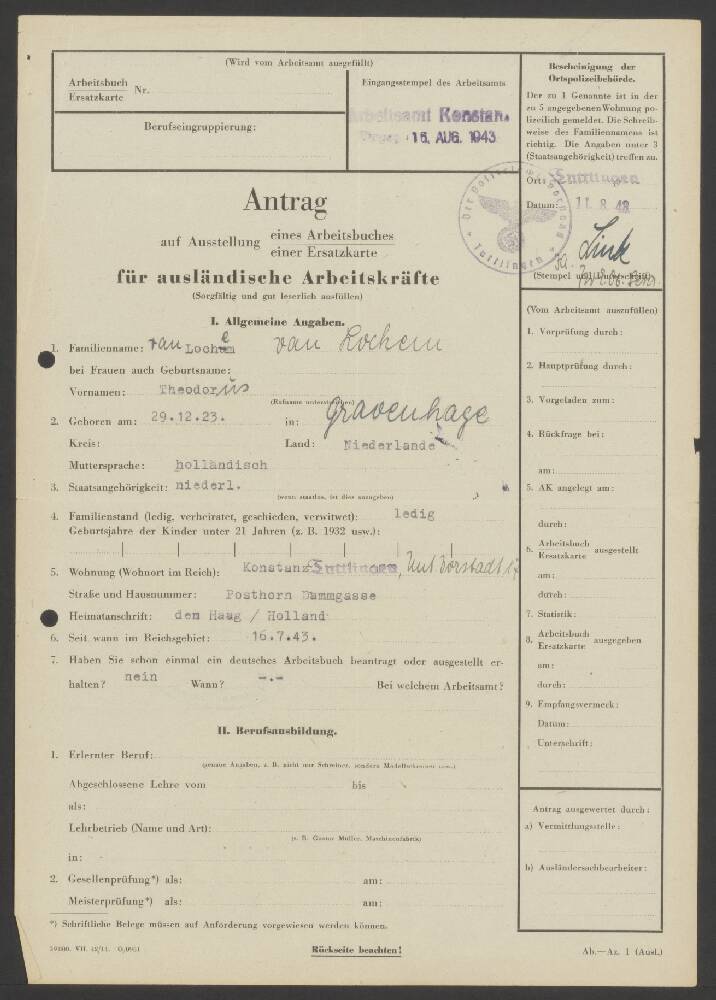 (Wird vom Arbeitsamt ausgefüllt)
Arbeitsbuch
Ersatzkarte Nr.
Berufseingruppierung:
Eingangsstempel des Arbeitsamts
Arbeitsamt Konstanz
16. AUG. 1943
Bescheinigung der
Ortspolizeibehörde.
Der zu 1 Genannte ist in der
zu 5 angegebenen Wohnung po-
lizeilich gemeldet. Die Schreib-
weise des Familiennamens ist
richtig. Die Angaben unter 3
(Staatsangehörigkeit) treffen zu.
Ort: Tuttlingen
Datum: 11. 8. 43
Link
(Stempel und Unterschrift)
Tuttlingen
Antrag
auf Ausstellung eines Arbeitsbuches
einer Ersatzkarte
für ausländische Arbeitskräfte
(Sorgfältig und gut leserlich ausfüllen)
I. Allgemeine Angaben.
1. Familienname: van Lochem van Lochem
bei Frauen auch Geburtsname:
Vornamen: Theodorus
(Rufname unterstreichen)
2. Geboren am: 29.12.23. in: Gravenhage
Kreis: Land: Niederlande
Muttersprache: holländisch
3. Staatsangehörigkeit: niederl.
(wenn staatlos, ist dies anzugeben)
4. Familienstand (ledig, verheiratet, geschieden, verwitwet): ledig
Geburtsjahre der Kinder unter 21 Jahren (z. B. 1932 usw.):
5. Wohnung (Wohnort im Reich): Konstanz Tuttlingen, Unt Vorstadt 17
Straße und Hausnummer: Posthorn Dammgasse
Heimatanschrift: den Haag / Holland
6. Seit wann im Reichsgebiet: 16.7.43.
7. Haben Sie schon einmal ein deutsches Arbeitsbuch beantragt oder ausgestellt er-
halten? nein Wann? -.- Bei welchem Arbeitsamt?
II. Berufsausbildung.
1. Erlernter Beruf:
(genaue Angaben, z. B. nicht nur Schreiner, sondern Modellschreiner usw.)
Abgeschlossene Lehre vom bis
als:
Lehrbetrieb (Name und Art):
(z. B. Gustav Müller, Maschinenfabrik)
in:
2. Gesellenprüfung*) als: am:
Meisterprüfung*) als: am:
*) Schriftliche Belege müssen auf Anforderung vorgewiesen werden können.
Rückseite beachten!
(Vom Arbeitsamt auszufüllen)
1. Vorprüfung durch:
2. Hauptprüfung durch:
3. Vorgeladen zum:
4. Rückfrage bei:
am:
5. AK angelegt am:
durch:
6. Arbeitsbuch
Ersatzkarte ausgestellt
am:
durch:
7. Statistik:
8. Arbeitsbuch
Ersatzkarte ausgegeben
am:
durch:
9. Empfangsvermerk:
Datum:
Unterschrift:
Antrag ausgewertet durch:
a) Vermittlungsstelle:
b) Ausländersachbearbeiter:
Ab.—Az. 1 (Ausl.)